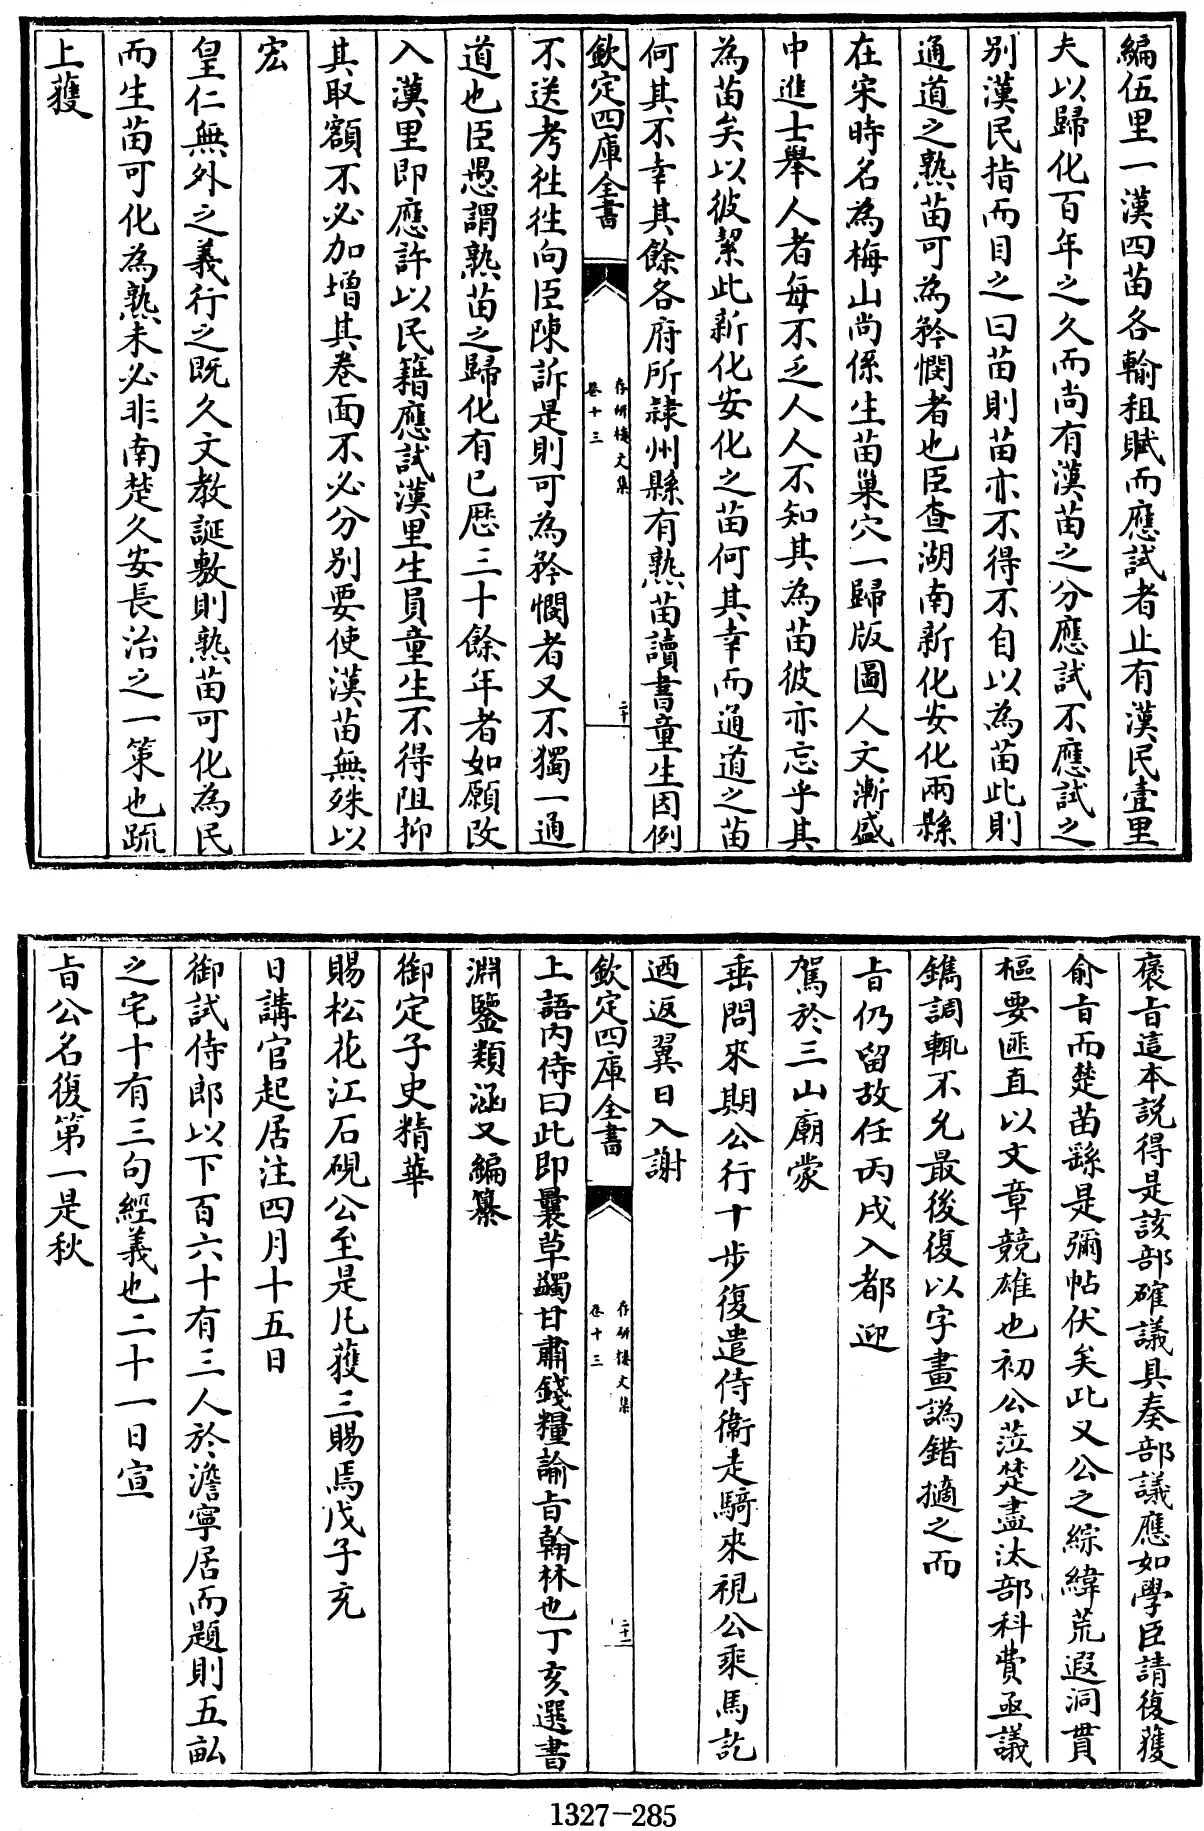 編伍里一漢四苗各輸租賦而應試者止有漢民壹里
夫以歸化百年之久而尚有漢苗之分應試不應試之
别漢民指而目之曰苗則苗亦不得不自以為苗此則
通道之熟苗可為矜憫者也臣查湖南新化安化兩縣
在宋時名為梅山尚係生苗巢穴一歸版圖人文漸盛
中進士舉人者每不乏人人不知其為苗彼亦忘乎其
為苗矣以彼絜此新化安化之苗何其幸而通道之苗
何其不幸其餘各府所隸州縣有熟苗讀書童生因例
欽定四庫全書
存研樓文集
卷十三
二十
不送考徃徃向臣陳訴是則可為矜憫者又不獨一通
道也臣愚謂熟苗之歸化有已歴三十餘年者如願改
入漢里即應許以民籍應試漢里生員童生不得阻抑
其取額不必加增其卷面不必分别要使漢苗無殊以
宏
皇仁無外之義行之既久文教誕敷則熟苗可化為民
而生苗可化為熟未必非南楚久安長治之一策也疏
上獲
褒㫖這本説得是該部確議具奏部議應如學臣請復獲
俞㫖而楚苗繇是彌帖伏矣此又公之綜緯荒遐洞貫
樞要匪直以文章競雄也初公蒞楚盡汰部科費亟議
鐫調輒不允最後復以字畫譌錯擿之而
㫖仍留故任丙戌入都迎
駕於三山廟蒙
垂問來期公行十步復遣侍衛走騎來視公乘馬訖
迺返翼日入謝
欽定四庫全書
存研樓文集
卷十三
二十一
上語内侍曰此即曩草蠲甘肅錢糧諭㫖翰林也丁亥選書
淵鑒類涵又編纂
御定子史精華
賜松花江石硯公至是凡獲三賜焉戊子充
日講官起居注四月十五日
御試侍郎以下百六十有三人於澹寧居而題則五畝
之宅十有三句經義也二十一日宣
㫖公名復第一是秋
1327-285